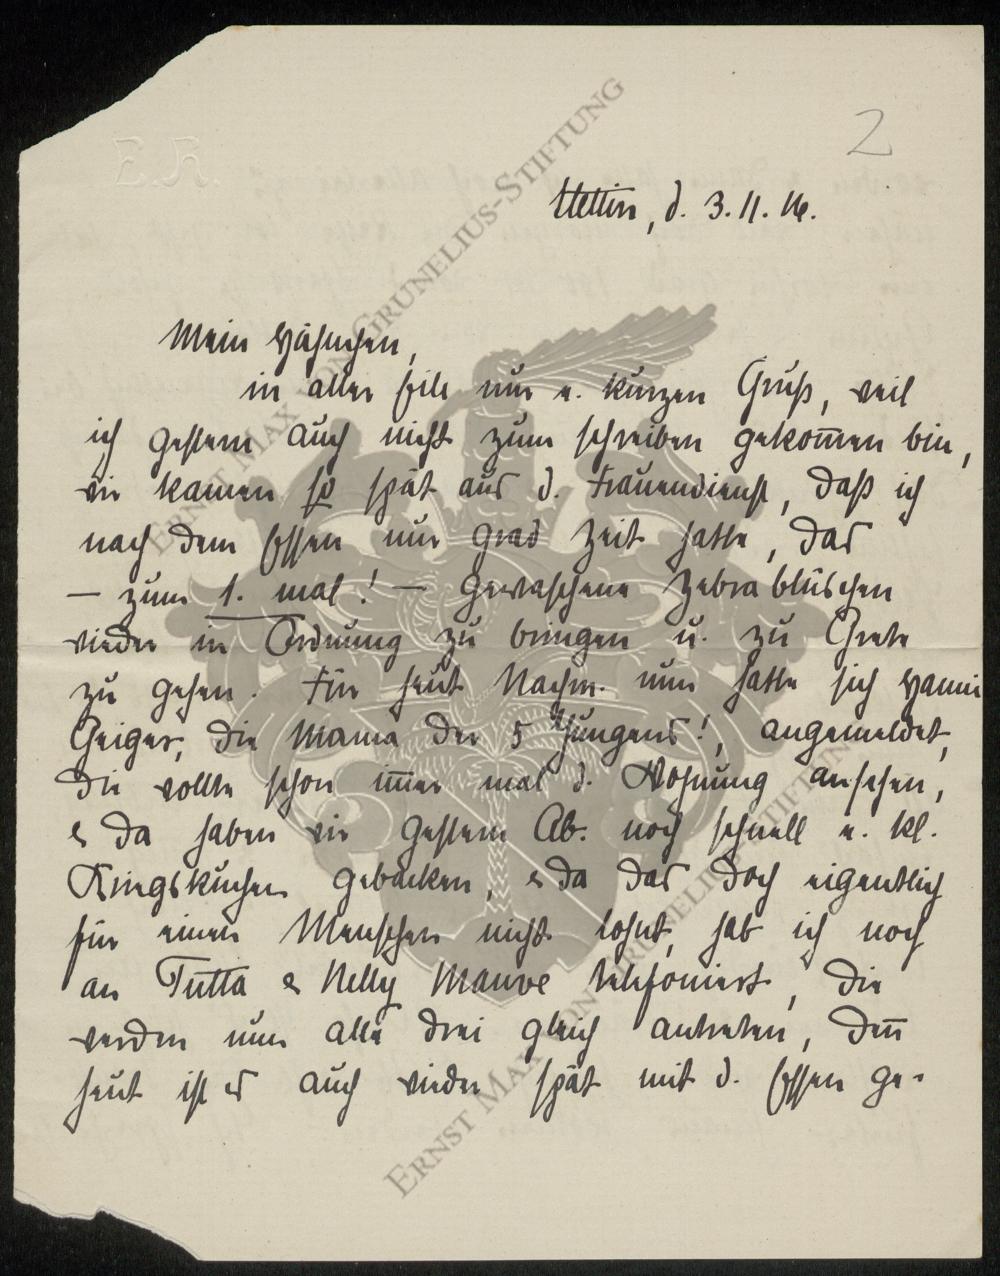 2
E.R.
Stettin, d. 3.11.16.
Mein Hähnchen,
in aller Eile nur e. kurzen Gruß, weil
ich gestern auch nicht zum schreiben gekom̅en bin,
wir kamen so spät aus d. Frauendienst, daß ich
nach dem Essen nur grad Zeit hatte, das
– zum 1. mal! – gewaschene Zebrablüschen
wieder in Ordnung zu bringen u. zu Grete
zu gehen. Für heut Nachm. nun hatte sich Hanni
Geiger, die Mama der 5 Jungens!, angemeldet,
die wollte schon im̅er mal d. Wohnung ansehen,
& da haben wir gestern Ab. noch schnell e. kl.
Kriegskuchen gebacken, & da das doch eigentlich
für einen Menschen nicht lohnt, hab ich noch
an Tutta & Nelly Mauve telefoniert, die
werden nun alle drei gleich antreten, den̅
heut ist es auch wieder spät mit d. Essen ge-
ERNST MAX VON GRUNELIUS-STIFTUNG
ERNST MAX VON GRUNELIUS-STIFTUNG